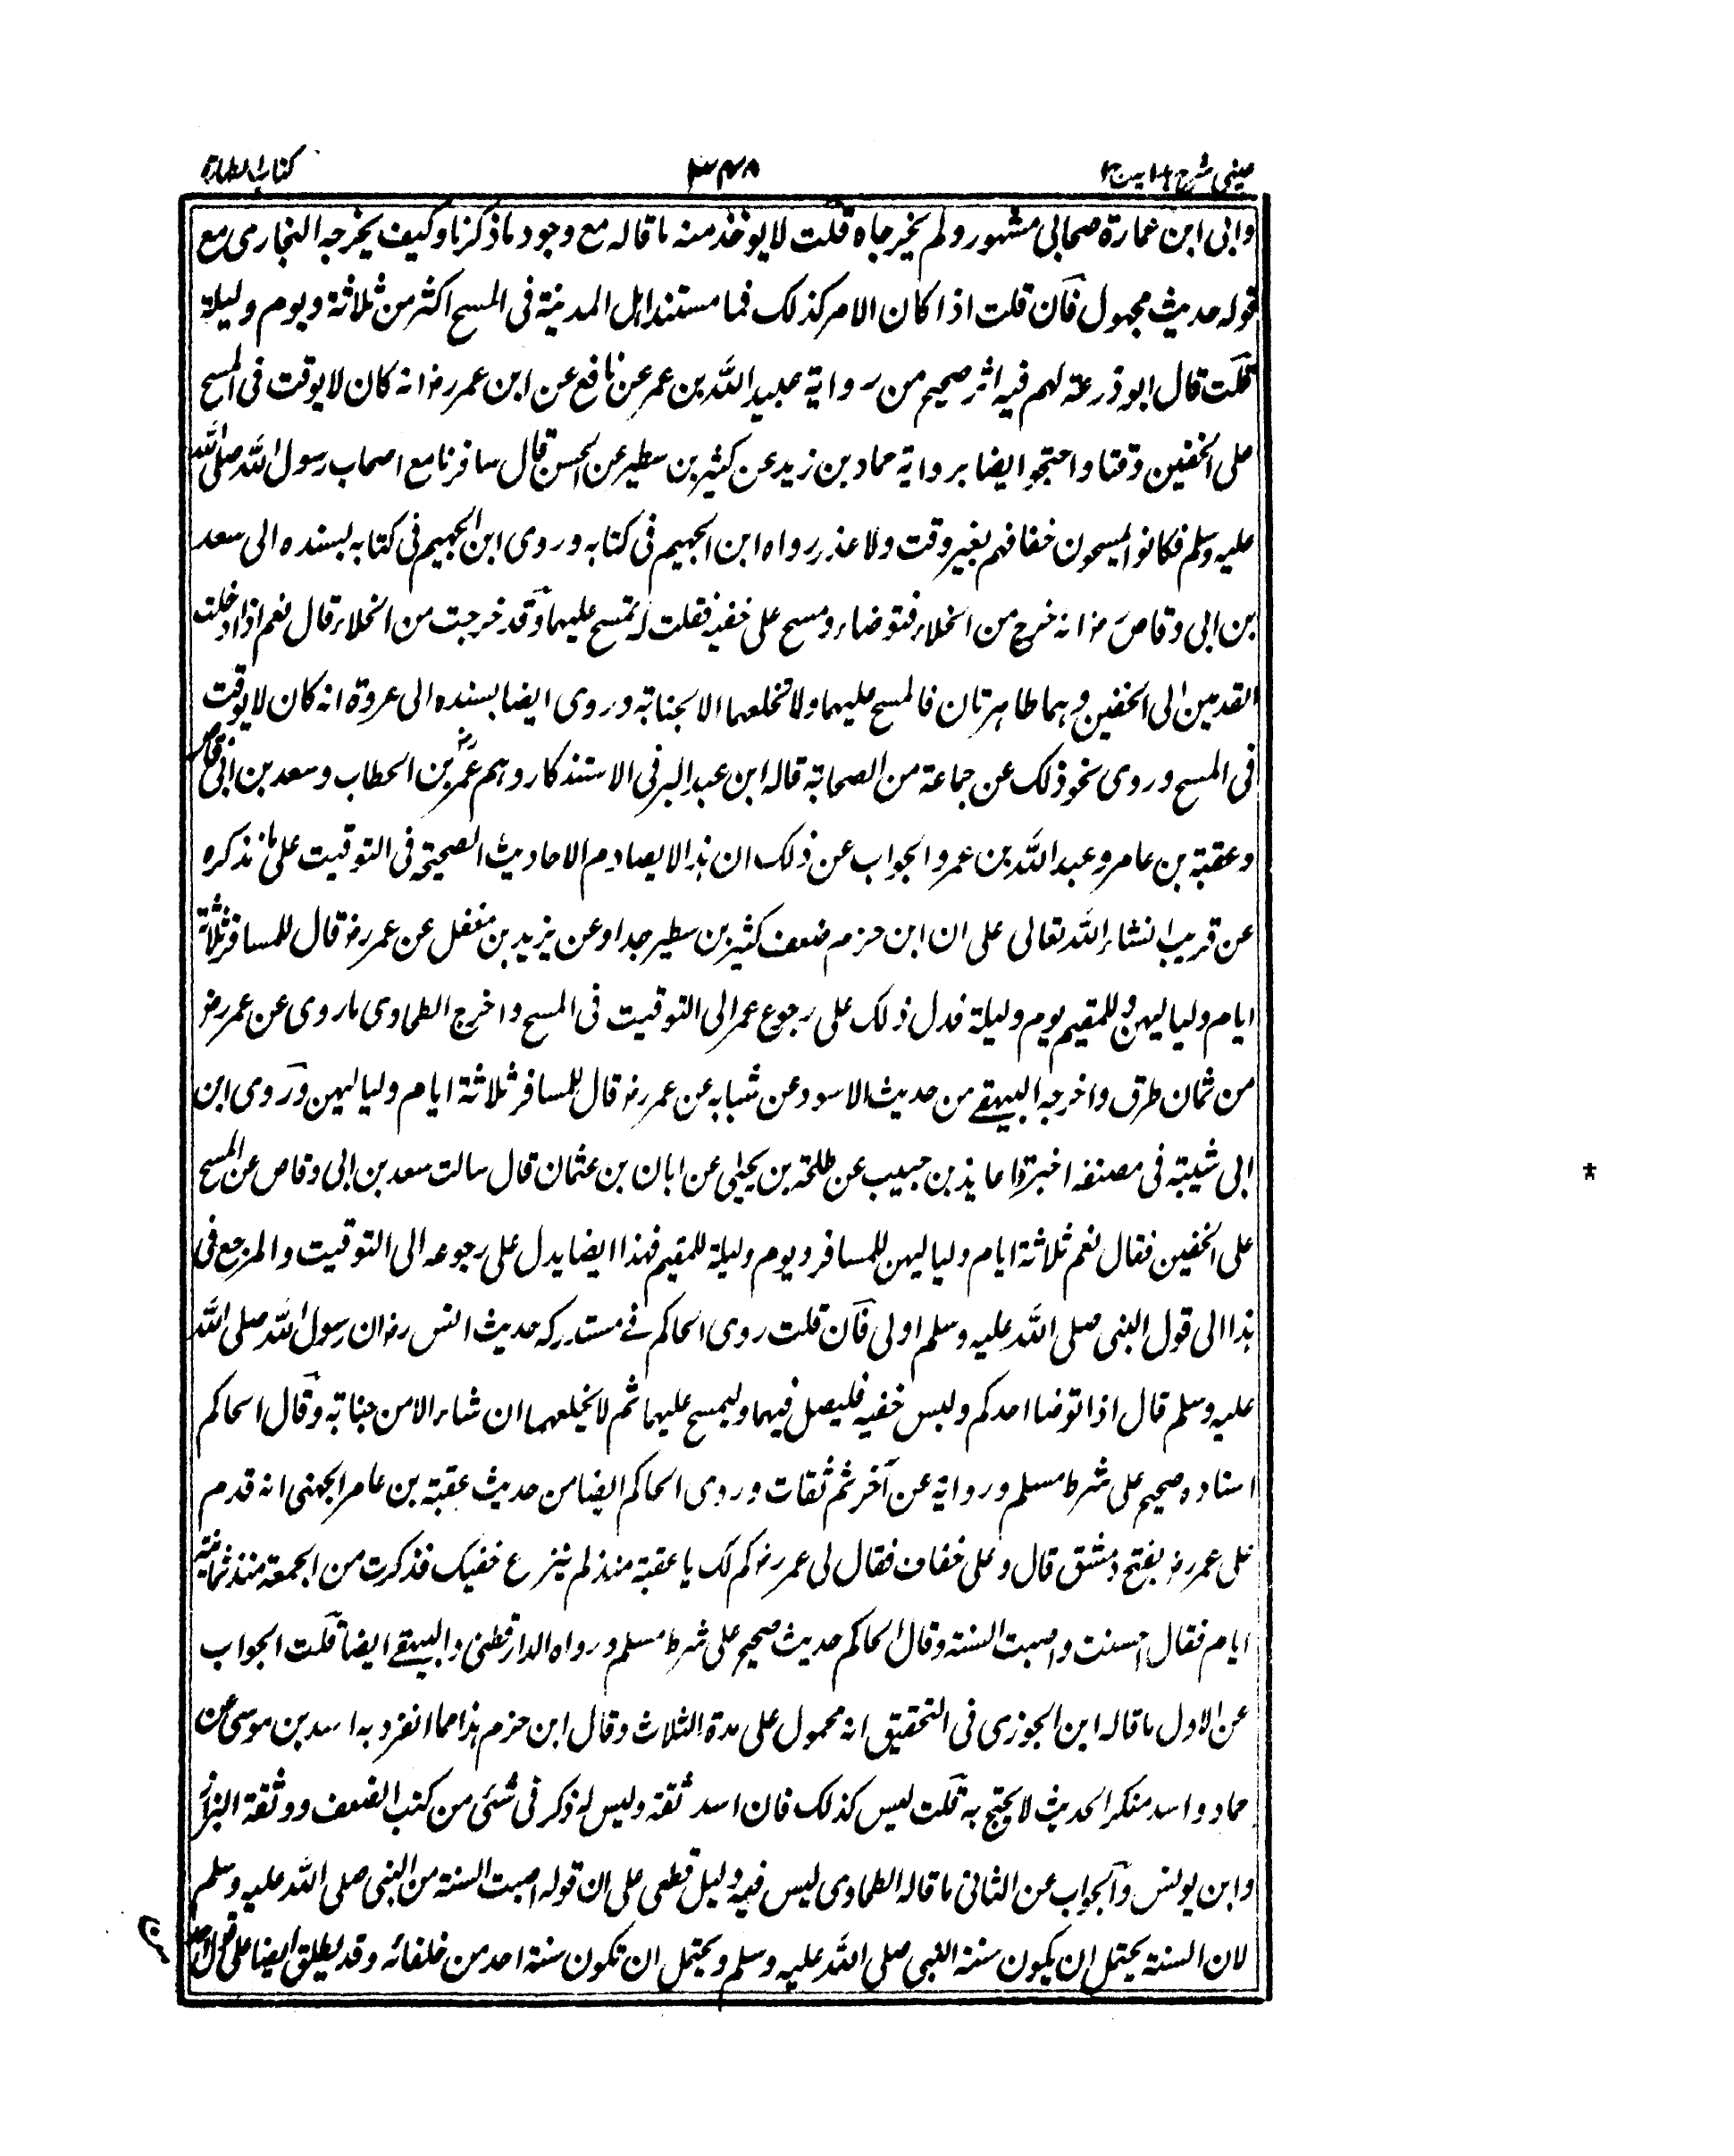 عينى شرح هداية ج ١
٣٤٨
كتاب الطهارة
وابى ابن عمارة صحابى مشهور ولم يخرجاه قلت لا يوخذ منه ما قاله مع وجود ما ذكرنا وكيف يخرجه البخارى مع
قوله حديث مجهول فان قلت اذا كان الامر كذلك فما مستند اهل المدينة فى المسح اكثر من ثلاثة ويوم وليلة
قلت قال ابو ذرعة لهم فيه اثر صحيح من رواية عبيد الله بن عمر عن نافع عن ابن عمر رض انه كان لا يوقت فى المسح
على الخفين وقتا واحتجوا ايضا برواية حماد بن زيد عن كثير بن سطير عن الحسن قال سافرنا مع اصحاب رسول الله صلى الله
عليه وسلم فكانوا يمسحون خفافهم بغير وقت ولا عذر رواه ابن الجهيم فى كتابه وروى ابن الجهيم فى كتابه بسنده الى سعد
بن ابى وقاص رض انه خرج من الخلاء فتوضاء ومسح على خفيه فقلت له تمسح عليهما وقد خرجت من الخلاء قال نعم اذا ادخلت
القدمين الى الخفين وهما طاهرتان فالمسح عليهما ولا تخلعهما الا بجنابة وروى ايضا بسنده الى عروة انه كان لا يوقت
فى المسح وروى نحو ذلك عن جماعة من الصحابة قاله ابن عبد البر فى الاستذكار وهم عمر بن الخطاب وسعد بن ابى وقاص
وعقبة بن عامر وعبد الله بن عمر والجواب عن ذلك ان هذا لا يصادم الاحاديث الصحيحة فى التوقيت على ما نذكره
عن قريب انشاء الله تعالى على ان ابن حزم ضعف كثير بن سطير جدا وعن يزيد بن مغفل عن عمر رض قال للمسافر ثلاثة
ايام ولياليهن وللمقيم يوم وليلة فدل ذلك على رجوع عمر الى التوقيت فى المسح واخرج الطحاوى ما روى عن عمر رض
من ثمان طرق واخرجه البيهقى من حديث الاسود عن شبابه عن عمر رض قال للمسافر ثلاثة ايام ولياليهن وروى ابن
ابى شيبة فى مصنفه اخبرنا عايذ بن حبيب عن طلحة بن يحيى عن ابان بن عثمان قال سالت سعد بن ابى وقاص عن المسح
على الخفين فقال نعم ثلاثة ايام ولياليهن للمسافر ويوم وليلة للمقيم فهذا ايضا يدل على رجوعه الى التوقيت والمرجع فى
هذا الى قول النبى صلى الله عليه وسلم اولى فان قلت روى الحاكم فى مستدركه حديث انس رض ان رسول الله صلى الله
عليه وسلم قال اذا توضا احدكم ولبس خفيه فليصل فيهما وليمسح عليهما ثم لا يخلعهما ان شاء الا من جنابة وقال الحاكم
اسناده صحيح على شرط مسلم ورواية عن آخرهم ثقات وروى الحاكم ايضا من حديث عقبة بن عامر الجهنى انه قدم
على عمر رض بفتح دمشق قال وعلى خفان فقال لى عمر رض كم لك يا عقبة منذ لم ينزع خفيك فذكرت من الجمعة منذ ثمانية
ايام فقال احسنت واصبت السنة وقال الحاكم حديث صحيح على شرط مسلم ورواه الدارقطنى والبيهقى ايضا قلت الجواب
عن الاول ما قاله ابن الجوزى فى التحقيق انه محمول على مدة الثلاث وقال ابن حزم هذا مما انفرد به اسد بن موسى عن
حماد واسد منكر الحديث لا يحتج به قلت ليس كذلك فان اسد ثقة وليس له ذكر فى شئ من كتب الضعف ووثقه البزار
وابن يونس والجواب عن الثانى ما قاله الطحاوى ليس فيه دليل قطعى على ان قوله اصبت السنة من النبى صلى الله عليه وسلم
لان السنة يحتمل ان يكون سنة النبى صلى الله عليه وسلم ويحتمل ان تكون سنة احد من خلفائه وقد يطلق ايضا على